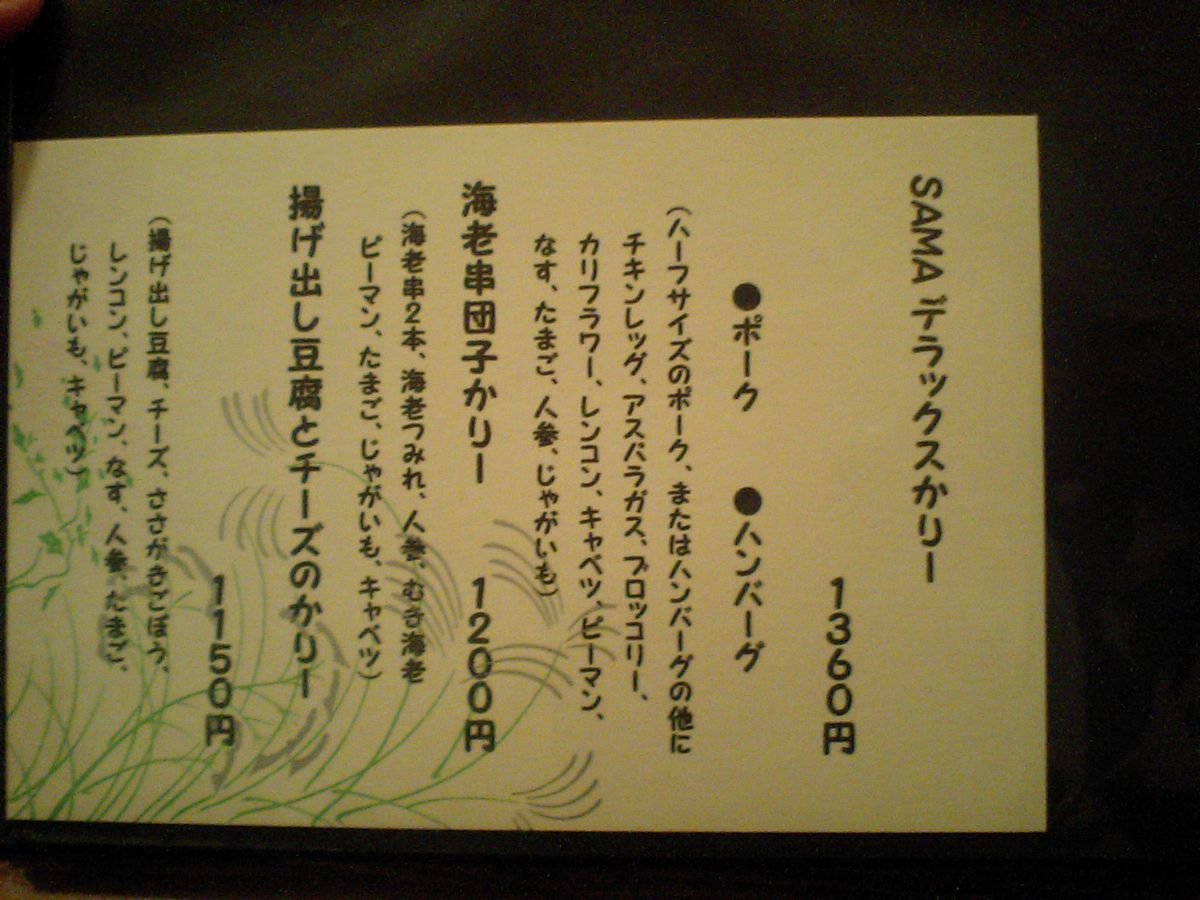 SAMA デラックスかりー
1360円
●ポーク ●ハンバーグ
(ハーフサイズのポーク、またはハンバーグの他に
チキンレッグ、アスパラガス、ブロッコリー、
カリフラワー、レンコン、キャベツ、ピーマン、
なす、たまご、人参、じゃがいも)
海老串団子かりー 1200円
(海老串2本、海老つみれ、人参、むき海老
ピーマン、たまご、じゃがいも、キャベツ)
揚げ出し豆腐とチーズのかりー
1150円
(揚げ出し豆腐、チーズ、ささがきごぼう、
レンコン、ピーマン、なす、人参、たまご、
じゃがいも、キャベツ)